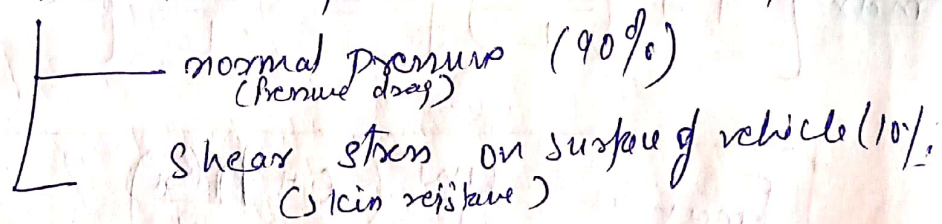 normal pressure (90%)
(Pressure drag)
Shear stress on surface of vehicle (10%
(skin resistance)